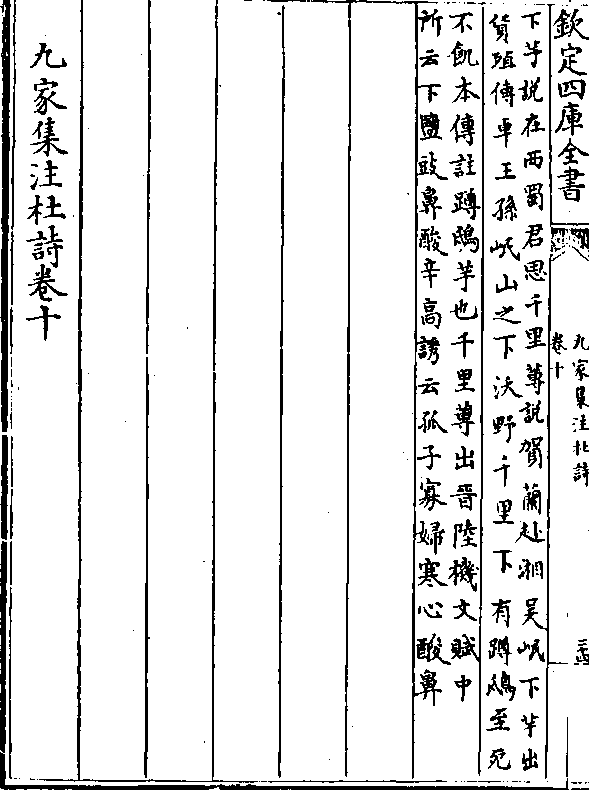 欽定四庫全書
九家集注杜詩
卷十
下芋說在西蜀君思千里蓴說賀蘭赴湘吳岷下芋出
貨殖傳卓王孫岷山之下沃野千里下有蹲鴟至死
不飢本傳註蹲鴟芋也千里蓴出晉陸機文賦中
所云下鹽豉鼻酸辛高誘云孤子寡婦寒心酸鼻
九家集注杜詩卷十